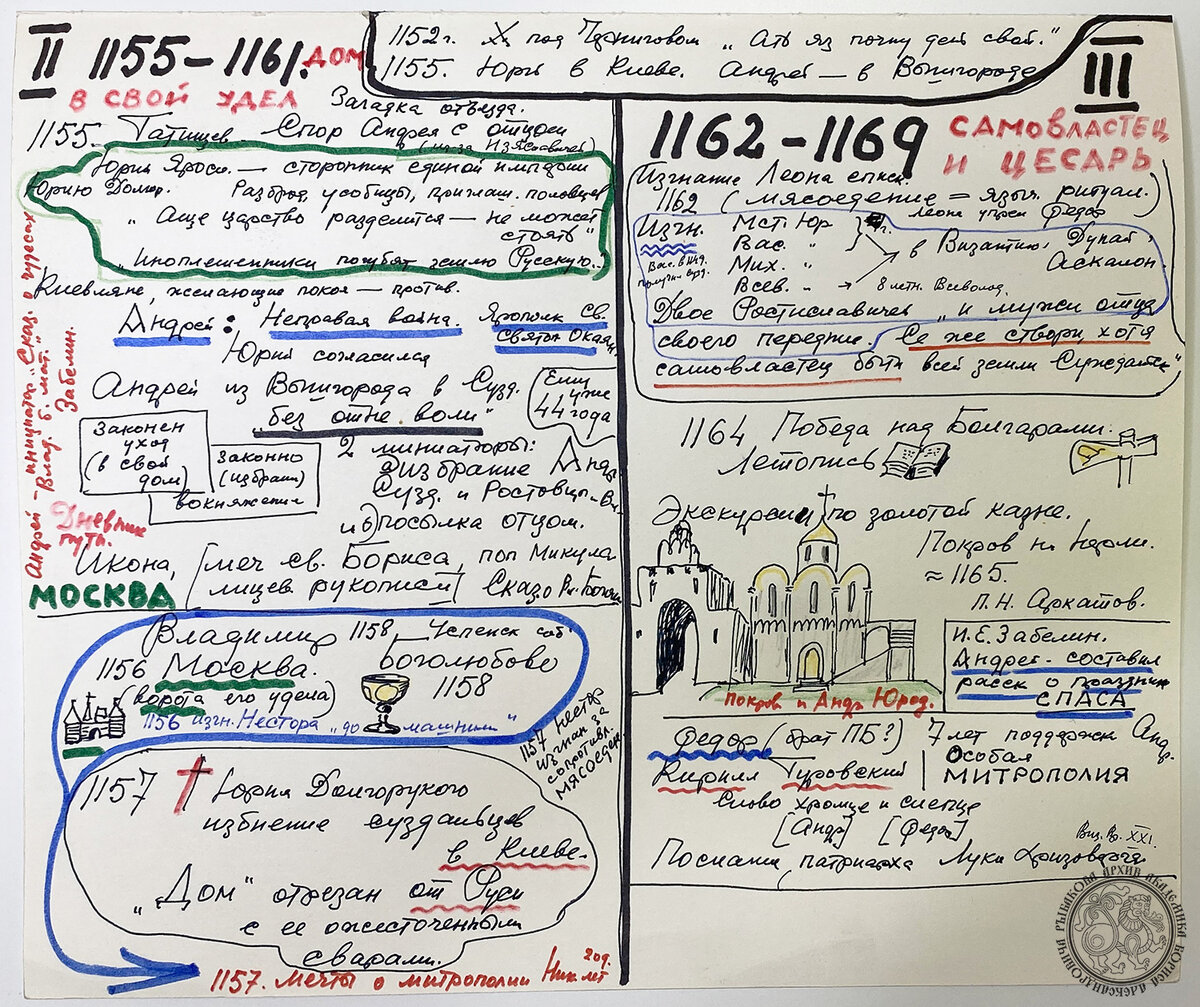 1152 г. Xн под Черниговом „Ать яз почну дей свой."
1155. Юрий в Киеве. Андрей — в Вышгороде
II 1155–1161. ДОМ
В СВОЙ УДЕЛ
Загадка отъезда.
1155. Татищев. Спор Андрея с отцом
(из-за Изяславичей)
Юрия Яросл. — сторонник единой империи
Юрию Долгор. Разброд, усобицы, приглаш. половцев
„Аще царство разделится — не может
стоять"
„Иноплеменники погубят землю Русскую."
Киевляне, желающие покоя — против.
Андрей: Неправая война. Ярополк Св.
Святоп Окаян.
Юрий согласился
Андрей из Вышгорода в Сузд.
„без отне воли"
Ему
уже
44 года
Законен
уход
(в свой
дом)
Законно
(избрали)
вокняжение
2 миниатюры:
избрание Андр.
Сузд. и Ростовц.
и посылка отцом.
Андрей – инициатор „Сказ. о чудесах
Влад. б. мат."
Забелин.
Дневник
пути.
Икона, [меч св. Бориса, поп Микула
лицев рукописи] Сказо
МОСКВА
Владимир 1158 Успенск соб
1156 Москва. Боголюбово
(ворота его удела) 1158
1156 изгн. Нестора „домашними"
1157 Нестор
изгнан за
сопротивл.
МЯСОЕДЕН
1157 † Юрия Долгорукого
избиение суздальцев
в Киеве.
„Дом" отрезан от Руси
с ее ожесточенными
сварами.
1157. Мечты о митрополии
20 д.
III
1162–1169 САМОВЛАСТЕЦ
И ЦЕСАРЬ
Изгнание Леона епис.
1162 (мясоедение = языч. ритуал.)
Леона упрек Федор
Изгн. Мст. Юр
Вас. "
Мих. "
Всев. " → 8 летн. Всеволод
в Византию, Дунай,
Аскалон.
Двое Ростиславичей „и мужи отца
своего передние. Се же створи хотя
самовластец быти всей земли Суждальск"
1164 Победа над Болгарами.
Летопись
Экскурсии по золотой казне.
Покров на Нерли.
≈ 1165.
П.Н. Аркатов.
Покров и Андр Юрод.
И.Е. Забелин.
Андрей – составил
расск о праздник
СПАСА
Федор (брат ПБ?) 7 лет поддержки Андр.
Кирилл Туровский
Особая
МИТРОПОЛИЯ
Слово хромце и слепце
[Андр] [Федор]
Виз. Вр. XXI.
Послание патриарха Луки Хризоверга
АРХИВ АКАДЕМИКА БОРИСА АЛЕКСАНДРОВИЧА РЫБАКОВА